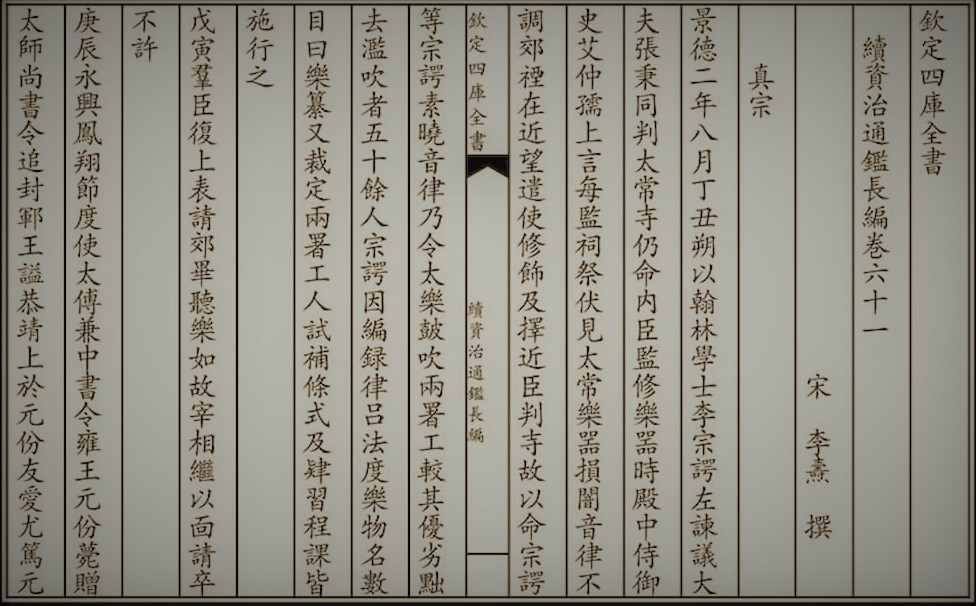 欽定四庫全書
續資治通鑑長編卷六十一
宋 李燾 撰
真宗
景德二年八月丁丑朔以翰林學士李宗諤左諫議大
夫張秉同判太常寺仍命内臣監修樂器時殿中侍御
史艾仲孺上言每監祠祭伏見太常樂器損闇音律不
調郊禋在近望遣使修飾及擇近臣判寺故以命宗諤
欽定四庫全書
續資治通鑑長編
等宗諤素曉音律乃令太樂鼓吹兩署工較其優劣黜
去濫吹者五十餘人宗諤因編録律吕法度樂物名數
目曰樂纂又裁定兩署工人試補條式及肄習程課皆
施行之
戊寅羣臣復上表請郊畢聽樂如故宰相繼以面請卒
不許
庚辰永興鳳翔節度使太傅兼中書令雍王元份薨贈
太師尚書令追封鄆王謚恭靖上於元份友愛尤篤元